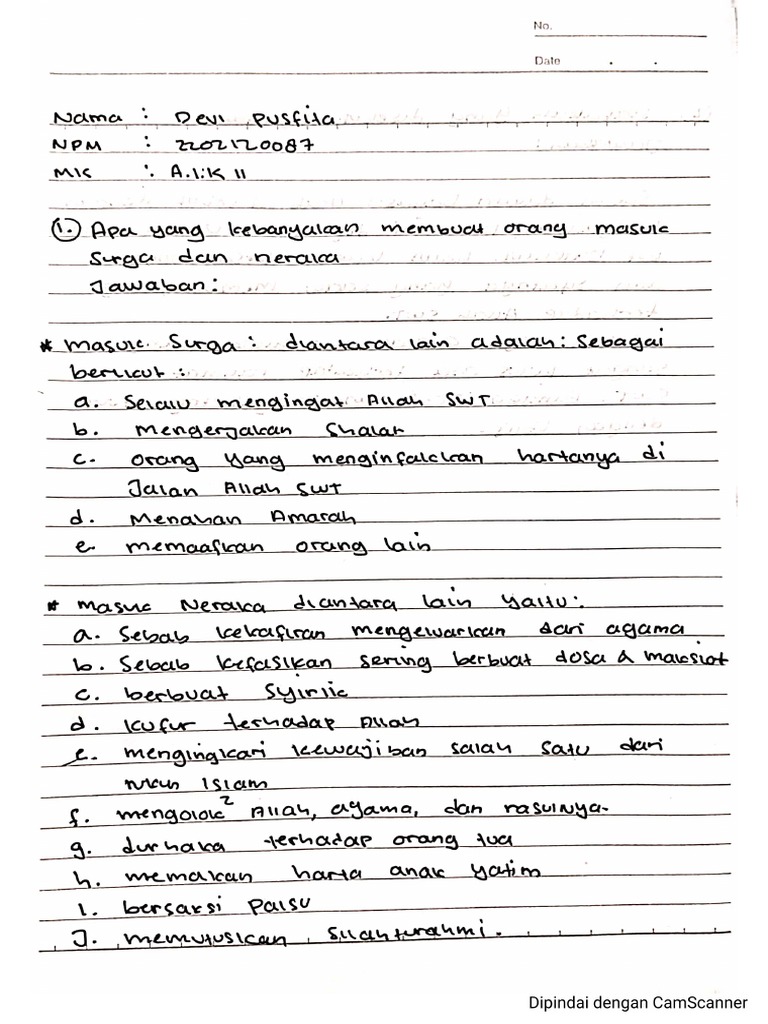 No.
Date . .
Nama : Devi Pusfita
NPM : 2202120087
MK : A.I.K II
1. Apa yang kebanyakan membuat orang masuk
Surga dan neraka
Jawaban :
* masuk Surga : diantara lain adalah : Sebagai
berikut :
a. Selalu mengingat Allah SWT
b. Mengerjakan Shalat
c. orang yang menginfakkan hartanya di
Jalan Allah SWT
d. Menahan Amarah
e. memaafkan orang lain
* masuk Neraka diantara lain yaitu :
a. Sebab kekafiran mengewarkan dari agama
b. Sebab kefasikan sering berbuat dosa & maksiat
c. berbuat Syirik
d. kufur terhadap Allah
e. mengingkari kewajiban salah satu dari
rukun Islam
f. mengolok² Allah, agama, dan rasulnya.
g. durhaka terhadap orang tua
h. memakan harta anak yatim
i. bersaksi palsu
J. memutuskan silahturahmi.
Dipindai dengan CamScanner